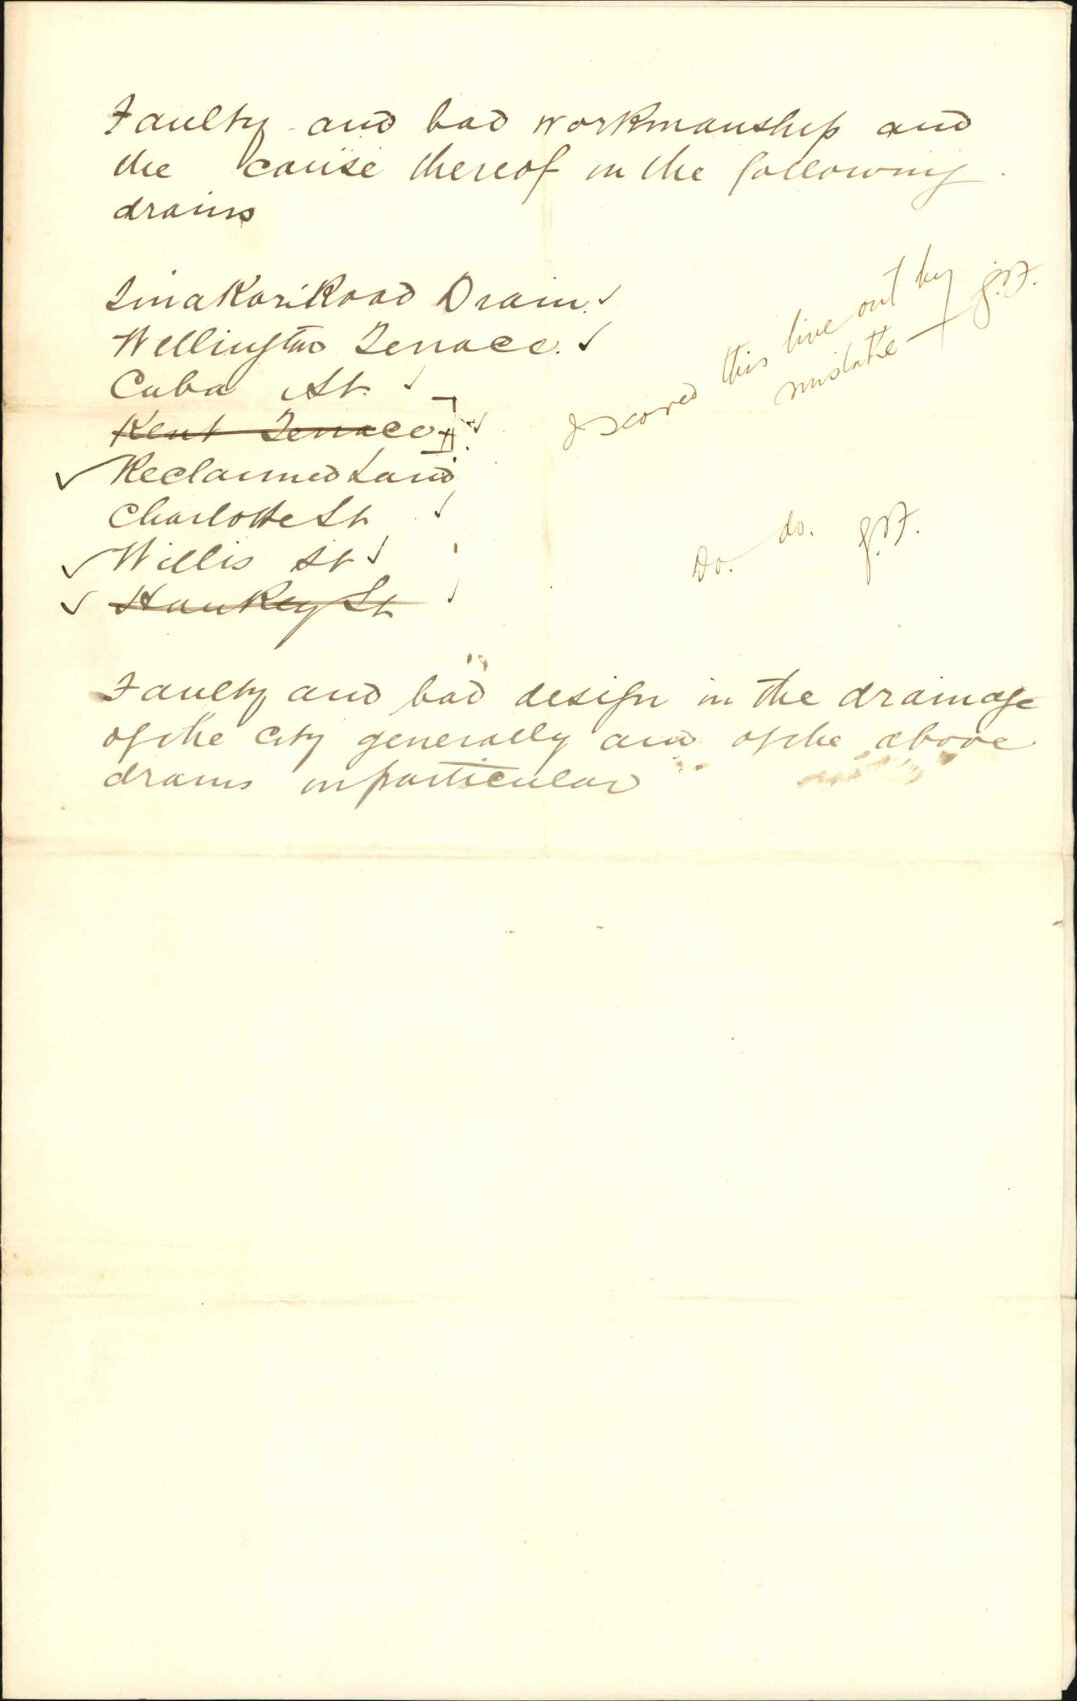 Faulty and bad workmanship and
the cause thereof in the following
drains
Tinakori Road Drain
Wellington Terrace.
Cuba St.
Kent Terrace
Reclaimed Land
Charlotte St
Willis St
Hankey St
I scored this line out by
mistake — J.F.
Do. do. J.F.
Faulty and bad design in the drainage
of the City generally and of the above
drains in particular